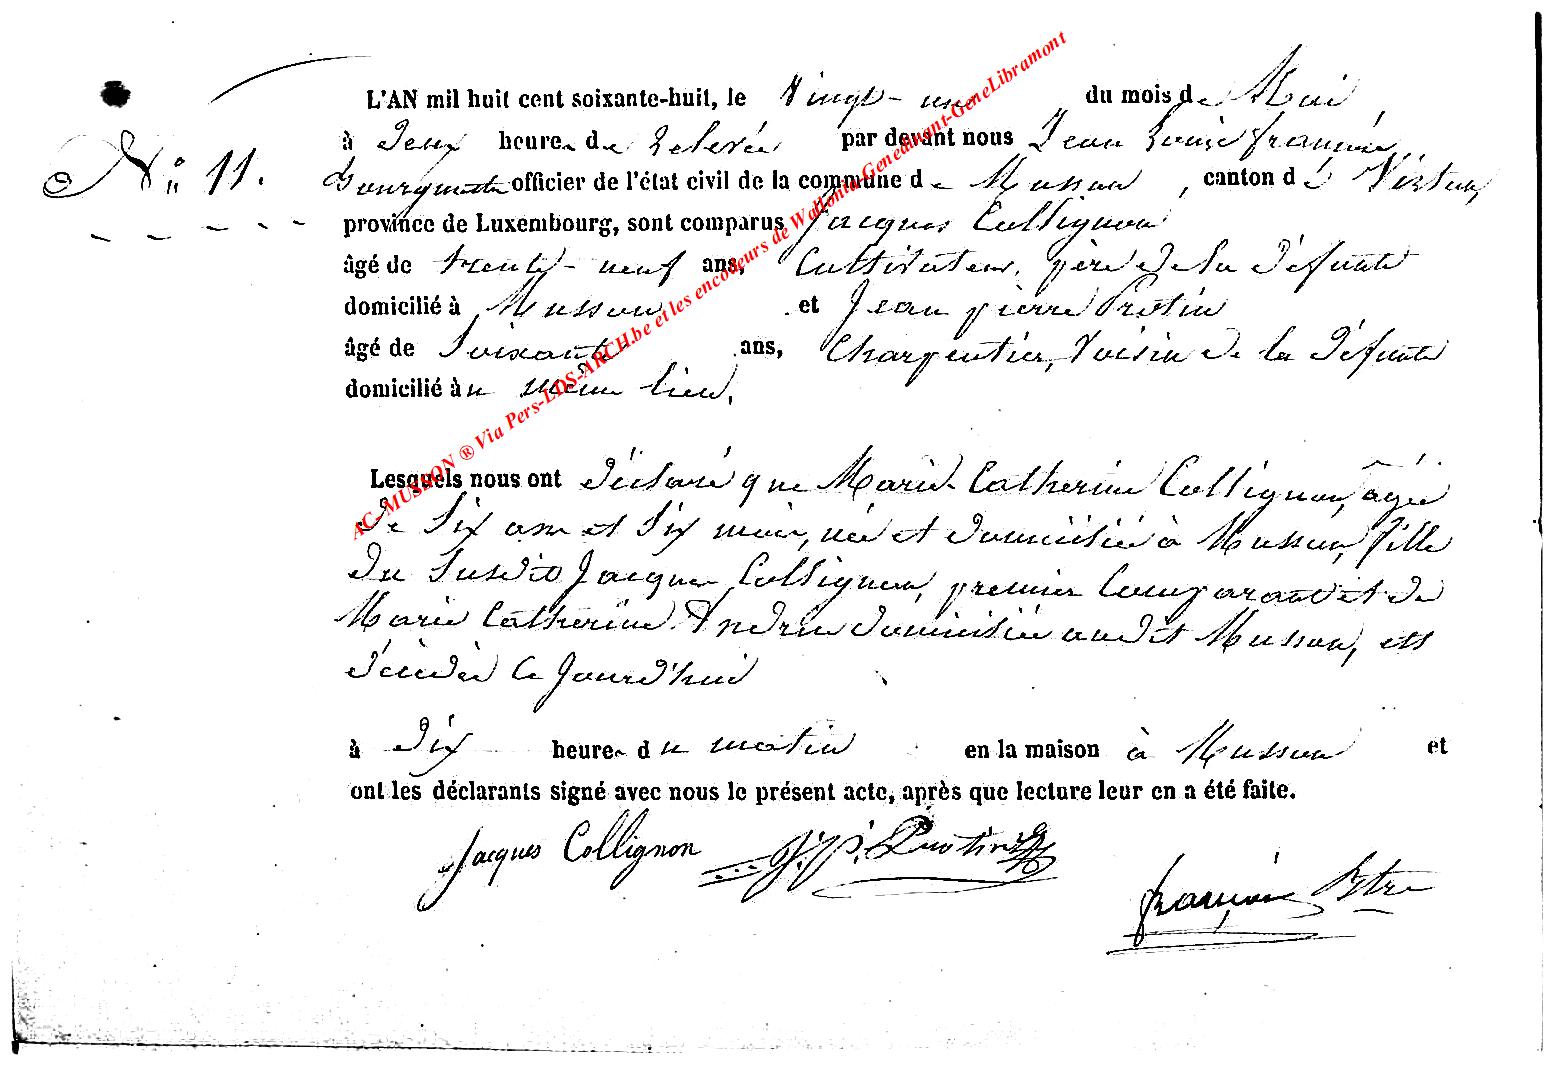 L'AN mil huit cent soixante-huit, le Vingt-un du mois de Mai
N° 11. à Deux heures de relevée par devant nous Jean Louis François
Bourguete officier de l'état civil de la commune de Musson, canton de Virton,
province de Luxembourg, sont comparus Jacques Collignon
âgé de trente-neuf ans, Cultivateur, père de la défunte
domicilié à Musson et Jean pierre Protin
âgé de Soixante ans, Charpentier, Voisin de la défunte
domicilié au même lieu.
Lesquels nous ont déclaré que Marie Catherine Collignon, âgée
de Six ans et Six mois, née et domiciliée à Musson, fille
du Susdit Jacques Collignon, premier Comparant et de
Marie Catherine domiciliée audit Musson, est
décédée Ce Jourd'hui
à Dix heures du matin en la maison à Musson et
ont les déclarants signé avec nous le présent acte, après que lecture leur en a été faite.
Jacques Collignon J. P. Protin
françois
AC-MUSSON ® Via Pers-LDS-ARCH.be et les encodeurs de Wallonia-Genedinant-GeneLibramont